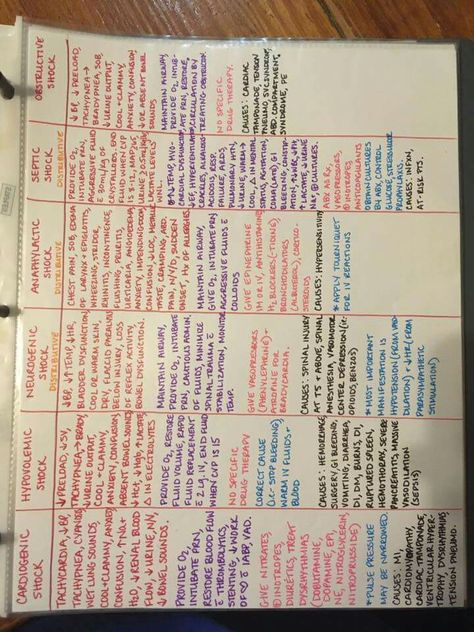 CARDIOGENIC
SHOCK
TACHYCARDIA, ↓BP,
TACHYPNEA, CYANOSIS
WET LUNG SOUNDS
COOL+CLAMMY, ANXIETY
CONFUSION, ↑NA+
H2O, ↓RENAL BLOOD
FLOW, ↓URINE, N/V,
↓BOWEL SOUNDS.
PROVIDE O2,
INTUBATE PRN.
RESTORE BLOOD FLOW
THROMBOLYTICS,
STENTING, ↓WORK
IABP, VAD.
GIVE NITRATES
INOTROPES,
DIURETICS, TREAT
DYSRHYTHMIAS
(DOBUTAMINE,
DOPAMINE, EPI,
NE, NITROGLYCERIN,
NITROPRUSSIDE)
*PULSE PRESSURE
MAY BE NARROWED.
CAUSES: MI,
CARDIOMYOPATHY,
CARDIAC TAMPONADE,
VENTRICULAR HYPER-
TROPHY, DYSRHYTHMIAS
TENSION PNEUMO.
HYPOVOLEMIC
SHOCK
↓PRELOAD, ↓SV,
TACHYPNEA → BRADY,
↓URINE OUTPUT,
COOL+CLAMMY,
ANXIETY, CONFUSION,
ABSENT BOWEL SOUNDS
↓Hct, ↓Hgb, ↑LACTATE
Δ IN ELECTROLYTES
PROVIDE O2, RESTORE
FLUID VOLUME, RAPID
FLUID REPLACEMENT
2 Lg. IV, END FLUID
WHEN CVP IS 15
NO SPECIFIC
DRUG THERAPY
CORRECT CAUSE
(i.e. STOP BLEEDING)
WARM IV FLUIDS +
BLOOD
CAUSES: HEMORRHAGE,
SURGERY, GI BLEEDING,
VOMITING, DIARRHEA,
DI, DM, BURNS, DI,
RUPTURED SPLEEN,
HEMOTHORAX, SEVERE
PANCREATITIS, MASSIVE
VASODILATION
(SEPSIS)
NEUROGENIC
SHOCK
DISTRIBUTIVE
↓BP, ↓TEMP, ↓HR,
BLADDER DYSFUNCTION
COOL OR WARM SKIN,
DRY, FLACCID PARALYSIS
BELOW INJURY, LOSS
OF REFLEX ACTIVITY,
BOWEL DYSFUNCTION.
MAINTAIN AIRWAY,
PROVIDE O2, INTUBATE
PRN, CAUTIOUS ADMIN
OF FLUIDS, MINIMIZE
SPINAL TRAUMA
STABILIZATION, MONITOR
TEMP.
GIVE VASOPRESSORS
(PHENYLEPHRINE) +
ATROPINE FOR
BRADYCARDIA.
CAUSES: SPINAL INJURY
AT T5 + ABOVE, SPINAL
ANESTHESIA, VASOMOTOR
CENTER DEPRESSION (i.e.
OPIOIDS, BENZOS)
*MOST IMPORTANT
MANIFESTATION IS
HYPOTENSION (FROM VASO-
DILATION) + ↓HR (FROM
PARASYMPATHETIC
STIMULATION)
ANAPHYLACTIC
SHOCK
DISTRIBUTIVE
CHEST PAIN, SOB, EDEMA
OF LARYNX + EPIGLOTTIS,
WHEEZING, STRIDOR,
RHINITIS, INCONTINENCE,
FLUSHING, PRURITUS,
URTICARIA, ANGIOEDEMA
ANXIETY, IMPENDING DOOM
CONFUSION, ↓LOC, METALLIC
TASTE, CRAMPING, ABD
PAIN, N/V/D, SUDDEN
ONSET, HX OF ALLERGIES
MAINTAIN AIRWAY,
GIVE O2, INTUBATE PRN
AGGRESSIVE FLUIDS
COLLOIDS
GIVE EPINEPHRINE
IM OR IV, ANTIHISTAMINES
H2 BLOCKERS
BRONCHODILATORS
(ALBUTEROL), CORTICO-
STEROIDS
CAUSES: HYPERSENSITIVITY
*APPLY TOURNIQUET
FOR IV REACTIONS
SEPTIC
SHOCK
DISTRIBUTIVE
PROVIDE O2,
INTUBATE PRN,
AGGRESSIVE FLUID
30mL/kg OF
CRYSTALLOIDS. END
FLUID WHEN CVP
IS 8-12, MAP>65,
URINE >0.5mL/kg
LACTATE LEVELS
WNL.
TEMP, MYO-
CARDIAL DYSFUNCTION,
↓EF, HYPERVENTILATION,
CRACKLES, ALKALOSIS →
ACIDOSIS, RESP.
FAILURE, ARDS,
PULMONARY HTN,
↓URINE, WARM →
COOL, Δ IN MENTAL
STATUS, AGITATION,
COMA (LATE), GI
BLEEDING,
↑LACTATE ↓URINE
Na+, CULTURES.
ABX AS RX,
VASOPRESSORS,
INOTROPES,
ANTICOAGULANTS
OBTAIN CULTURES
B4 ABX, CONTROL
GLUCOSE, STRESS ULCER
PROPHYLAXIS.
CAUSES: INFXN,
AT-RISK PTS.
OBSTRUCTIVE
SHOCK
↓BP, ↓PRELOAD,
TACHYPNEA →
BRADYPNEA, SOB,
↓URINE OUTPUT,
COOL+CLAMMY,
ANXIETY, CONFUSION
↓OR ABSENT BOWEL
SOUNDS
MAINTAIN AIRWAY,
PROVIDE O2, INTUB-
ATE PRN, RESTORE
CIRCULATION BY
TREATING OBSTRUCTION
NO SPECIFIC
DRUG THERAPY.
CAUSES: CARDIAC
TAMPONADE, TENSION
PNEUMO, SVC SYNDROME,
ABD. COMPARTMENT
SYNDROME, PE